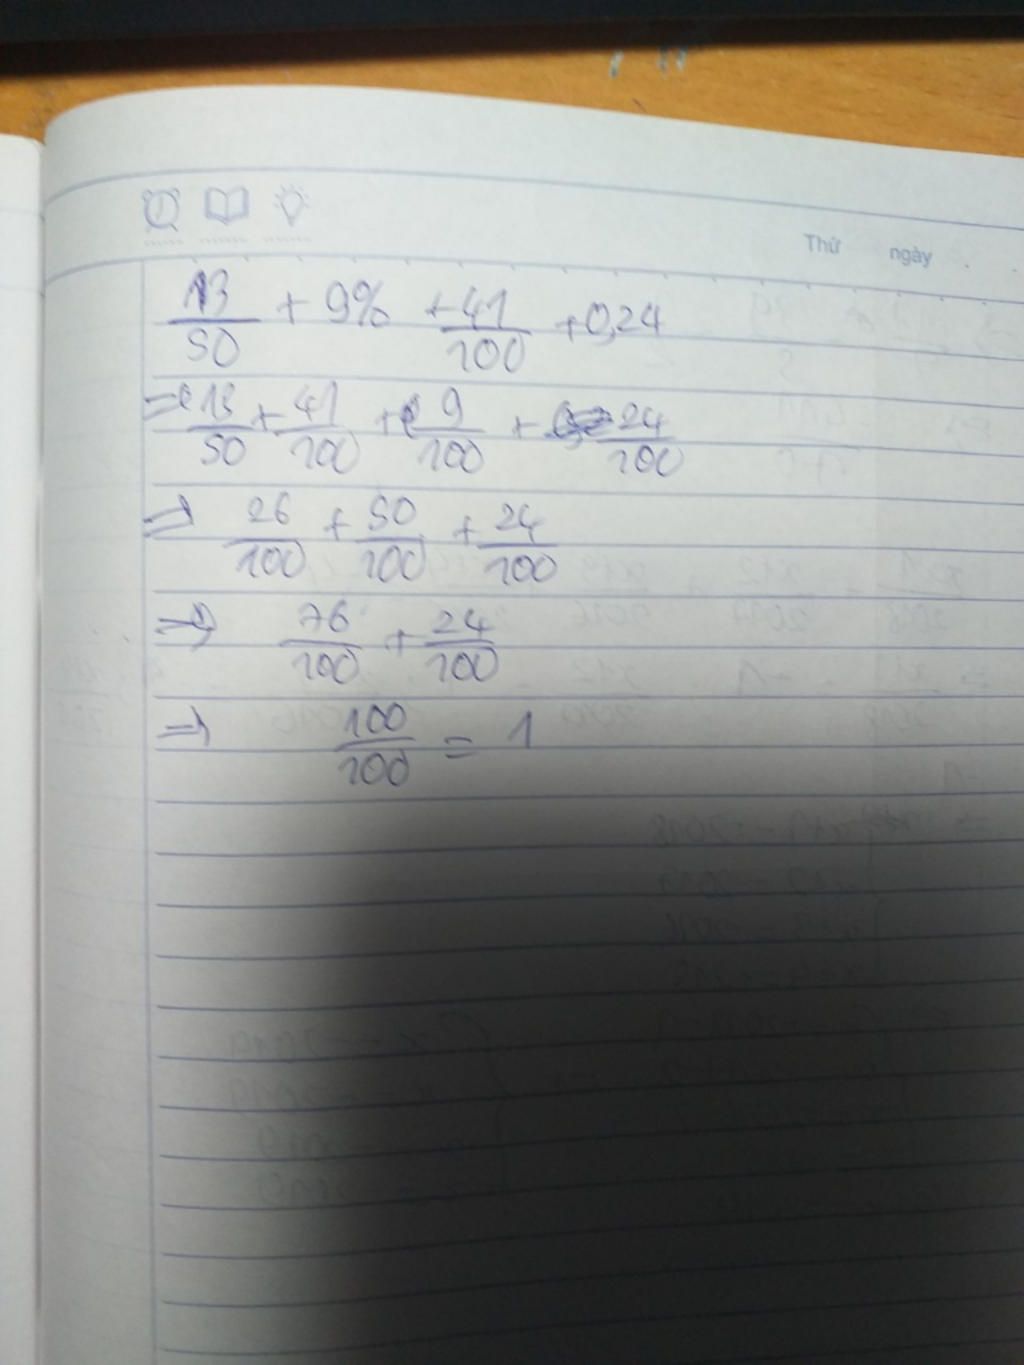 Thứ ngày
13/50 + 9% + 41/100 + 0,24
=> 13/50 + 41/100 + 9/100 + 24/100
=> 26/100 + 50/100 + 24/100
=> 76/100 + 24/100
=> 100/100 = 1